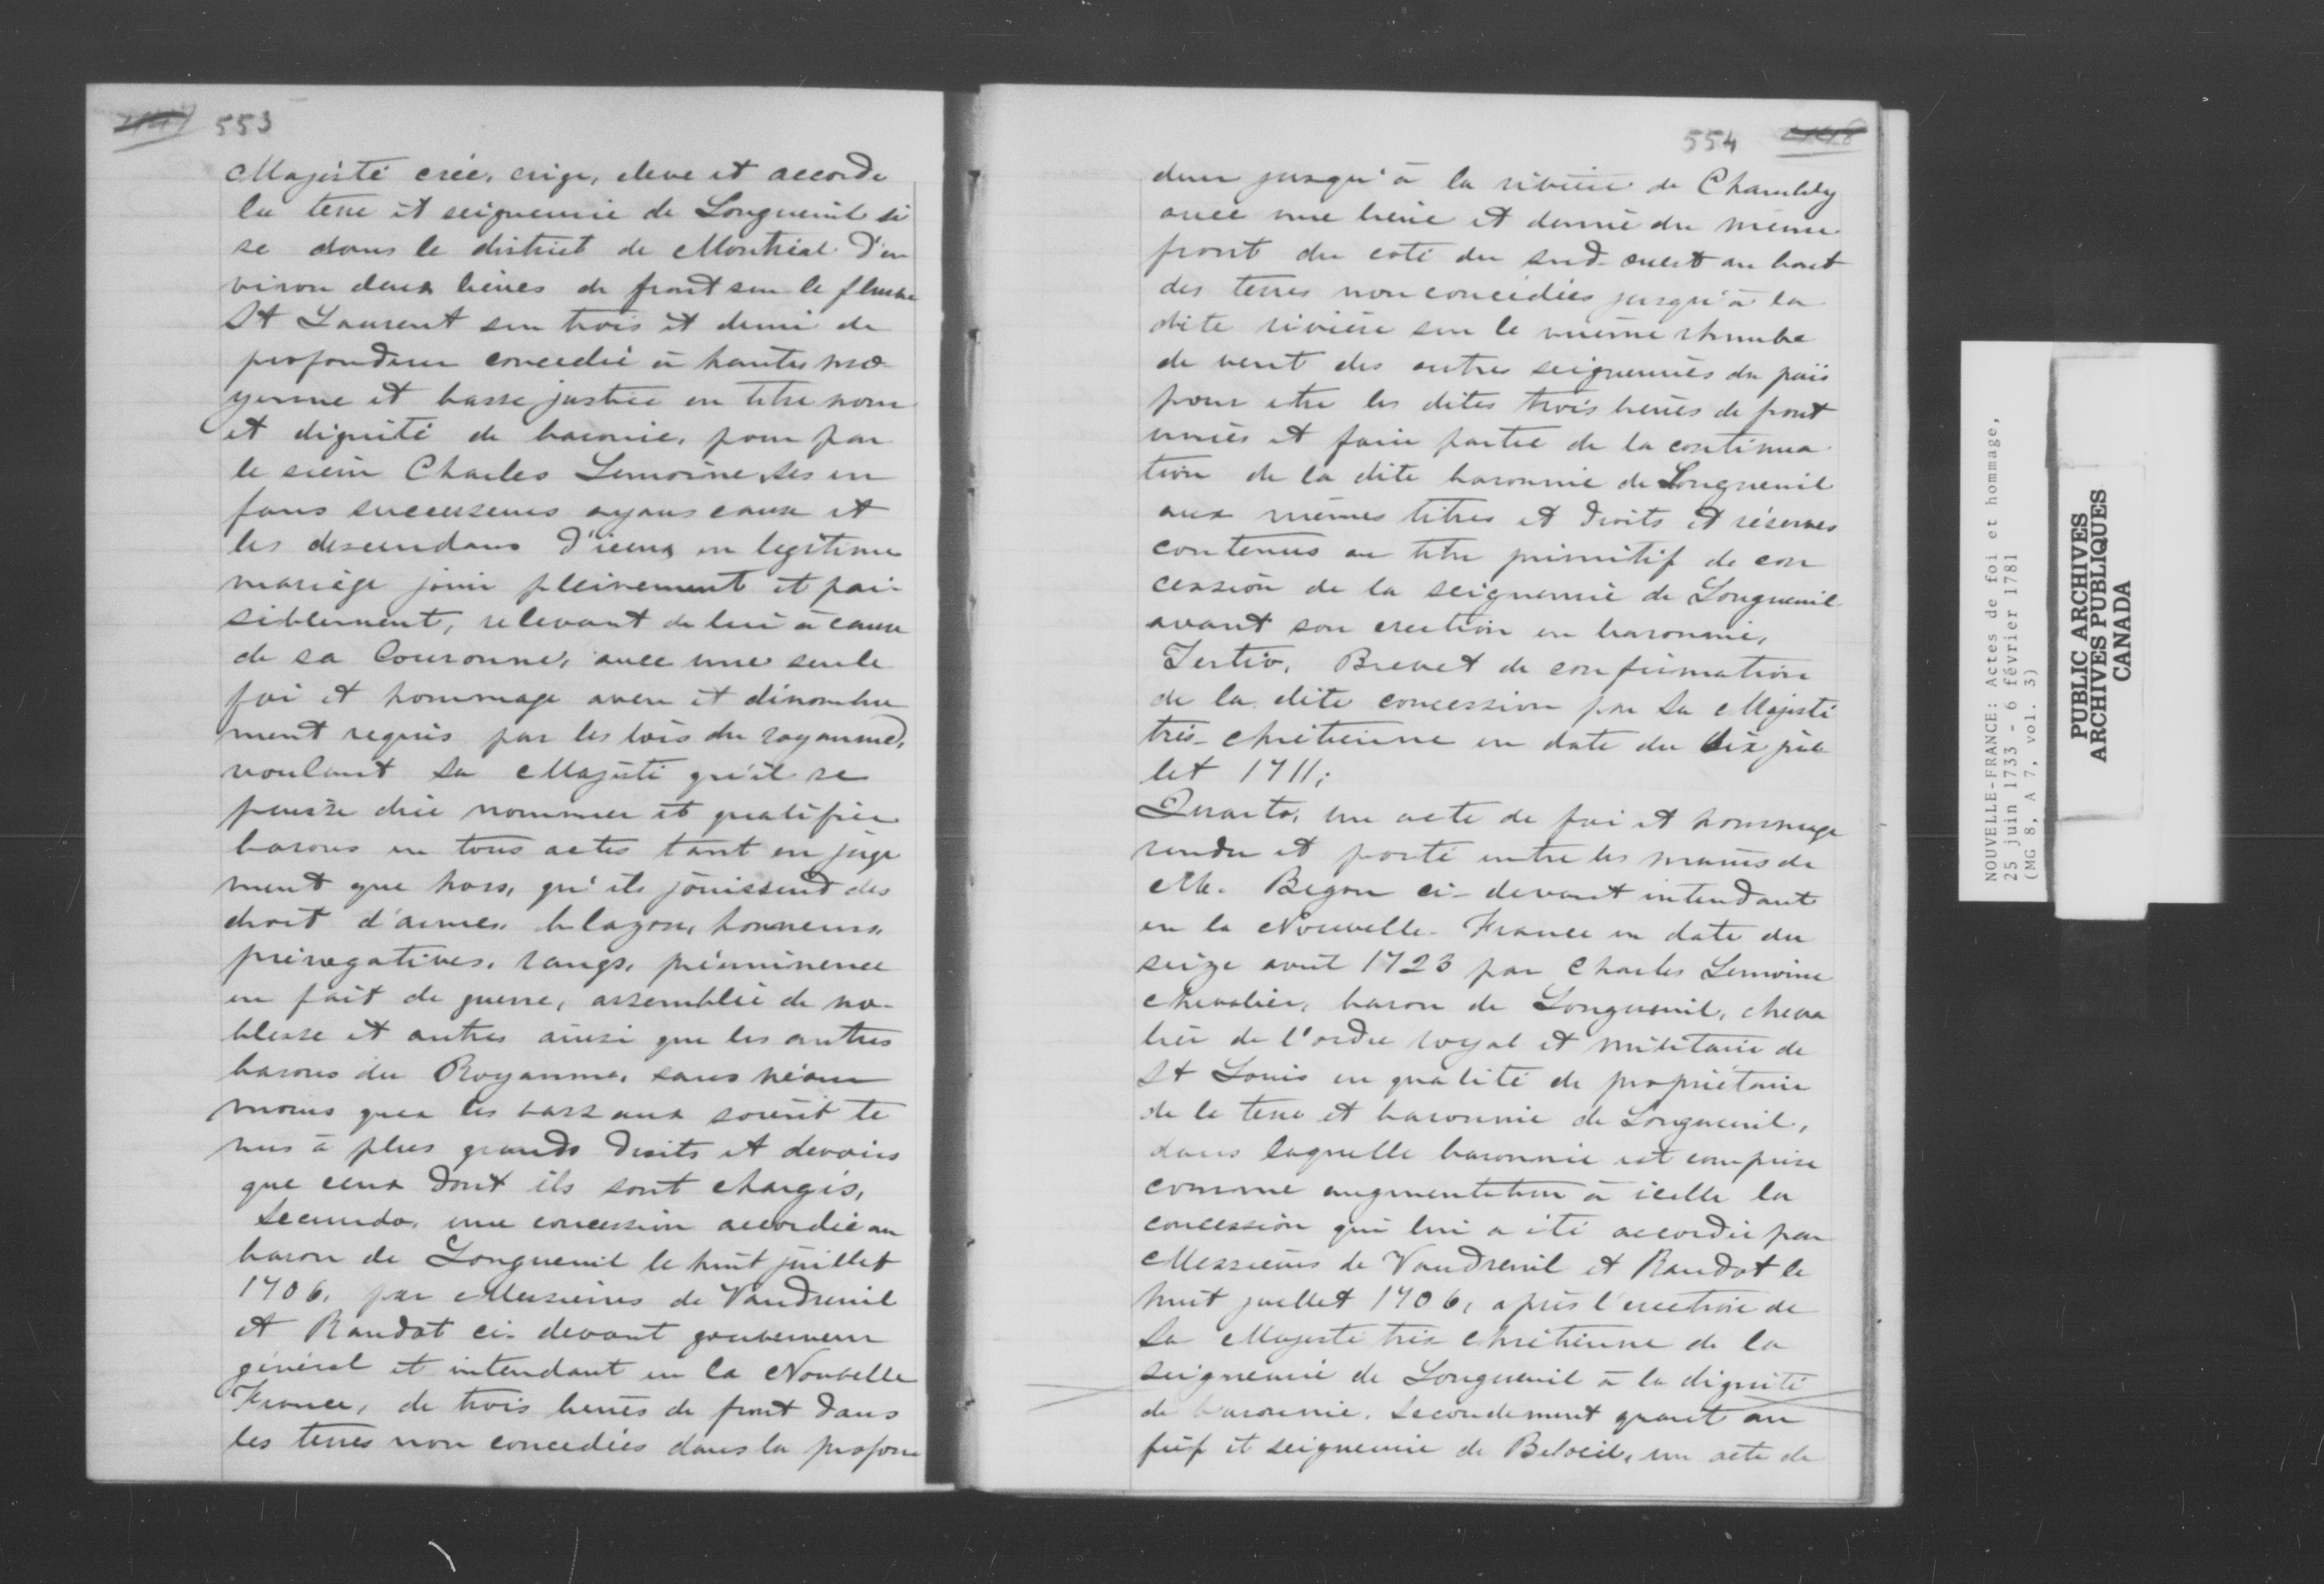 553
Majesté crée, erige, eleve et accorde
la terre et seigneurie de Longueuil si
se dans le district de Montréal d'en
viron deux lieues de front sur le fleuve
St Laurent sur trois et demi de
profondeur concedée à haute, mo
yenne et basse justice en titre nom
et dignité de baronie, pour par
le sieur Charles Lemoine, ses en
fans successeurs ayans cause et
les descendans d'iceux en legitime
mariage jouir pleinement et pai-
siblement, relevant de lui à cause
de sa Couronne, avec une seule
foi et hommage aveu et dénombre
ment requis par les lois du royaume,
voulant sa Majesté qu'il se
puisse dire nommer et qualifier
barons en tous actes tant en juge
ment que hors, qu'ils jouissent des
droit d'armes, blazon, honneurs,
prérogatives, rangs, prééminence
en fait de guerre, assemblée de no-
blesse et autres ainsi que les autres
barons du Royaume, sans néan
moins que les vassaux soient te
nus à plus grands droits et devoirs
que ceux dont ils sont chargés,
Secundo, une concession accordée au
baron de Longueuil le huit juillet
1706, par Messieurs de Vaudreuil
et Raudot ci-devant gouverneur
général et intendant en la Nouvelle
France, de trois lieues de front dans
les terres non concedées dans la profon
554
deur jusqu'à la rivière de Chambly
avec une lieue et demie du même
front du coté du sud-ouest au bout
des terres non concédées jusqu'à la
dite rivière sur le même rhumbe
de vent des autres seigneuries du païs
pour etre les dites trois lieues de front
unies et faire partie de la continua
tion de la dite baronnie de Longueuil
aux mêmes titres et droits et réserves
contenus au titre primitif de con
cession de la seigneurie de Longueuil
avant son erection en baronnie,
Tertio, Brevet de confirmation
de la dite concession par Sa Majesté
très-chrétienne en date du dix juil
let 1711;
Quarto, un acte de foi et hommage
rendu et porté entre les mains de
M. Begon ci-devant intendant
en la Nouvelle-France en date du
seize aout 1723 par Charles Lemoine
chevalier, baron de Longueuil, cheva
lier de l'ordre royal et militaire de
St Louis en qualité de propriétaire
de la terre et baronnie de Longueuil,
dans laquelle baronnie est comprise
comme augmentation à icelle la
concession qui lui a été accordée par
Messieurs de Vaudreuil et Raudot le
huit juillet 1706, après l'erection de
Sa Majesté très chrétienne de la
seigneurie de Longueuil à la dignité
de baronnie. Secondement quant au
fief et seigneurie de Beloeil, un acte de
NOUVELLE-FRANCE: Actes de foi et hommage,
25 juin 1733 - 6 février 1781
(MG 8, A 7, vol. 3)
PUBLIC ARCHIVES
ARCHIVES PUBLIQUES
CANADA